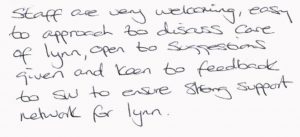 Staff are very welcoming, easy
to approach to discuss care
of Lynn, open to suggestions
given and keen to feedback
to SW to ensure strong support
network for Lynn.